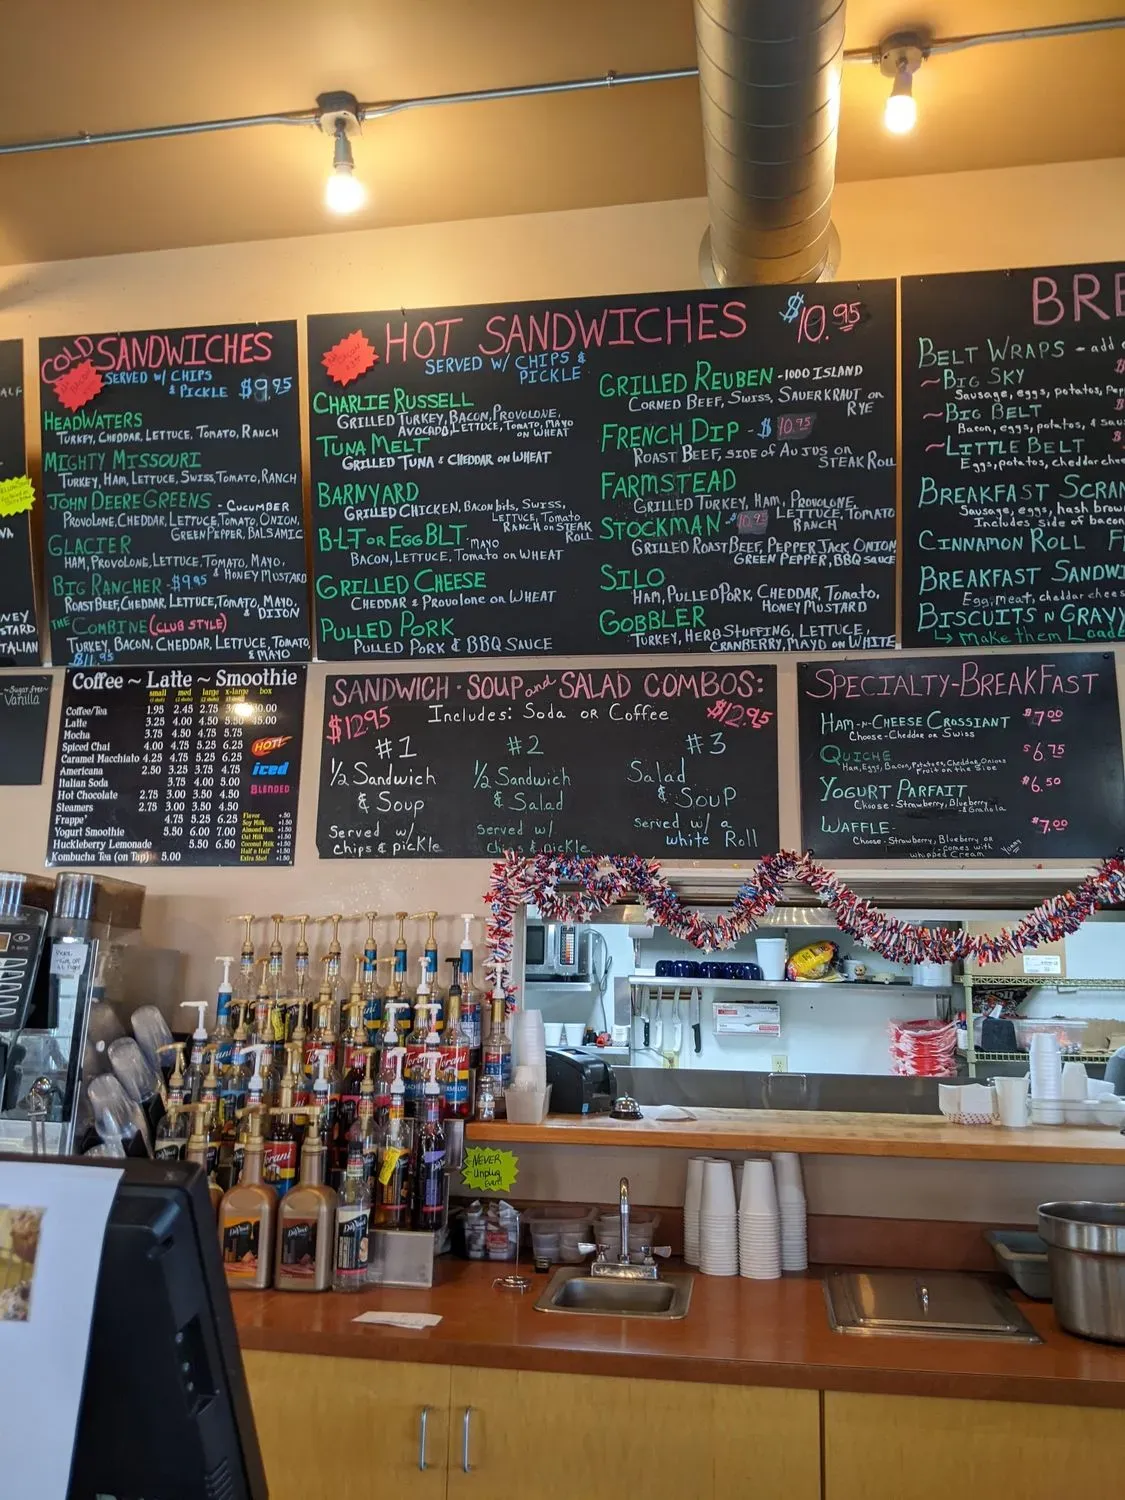 COLD SANDWICHES
SERVED W/ CHIPS
& PICKLE $9.95
HEADWATERS
TURKEY, CHEDDAR, LETTUCE, TOMATO, RANCH
MIGHTY MISSOURI
TURKEY, HAM, LETTUCE, SWISS, TOMATO, RANCH
JOHN DEERE GREENS - CUCUMBER
PROVOLONE, CHEDDAR, LETTUCE, TOMATO, ONION,
GREEN PEPPER, BALSAMIC
GLACIER
HAM, PROVOLONE, LETTUCE, TOMATO, MAYO,
& HONEY MUSTARD
BIG RANCHER - $9.95
ROAST BEEF, CHEDDAR, LETTUCE, TOMATO, MAYO,
& DIJON
THE COMBINE (CLUB STYLE)
TURKEY, BACON, CHEDDAR, LETTUCE, TOMATO,
& MAYO
$11.95
HOT SANDWICHES $10.95
SERVED W/ CHIPS &
PICKLE
CHARLIE RUSSELL
GRILLED TURKEY, BACON, PROVOLONE,
AVOCADO, LETTUCE, TOMATO, MAYO
ON WHEAT
TUNA MELT
GRILLED TUNA & CHEDDAR ON WHEAT
BARNYARD
GRILLED CHICKEN, BACON bits, SWISS,
LETTUCE, TOMATO
RANCH ON STEAK
ROLL
B-L-T OR EGG BLT - MAYO
BACON, LETTUCE, TOMATO ON WHEAT
GRILLED CHEESE
CHEDDAR & PROVOLONE ON WHEAT
PULLED PORK
PULLED PORK & BBQ SAUCE
GRILLED REUBEN - 1000 ISLAND
CORNED BEEF, SWISS, SAUERKRAUT ON
RYE
FRENCH DIP - $10.95
ROAST BEEF, SIDE OF AU JUS ON
STEAK ROLL
FARMSTEAD
GRILLED TURKEY, HAM, PROVOLONE,
LETTUCE, TOMATO
RANCH
STOCKMAN - $10.95
GRILLED ROAST BEEF, PEPPER JACK, ONION
GREEN PEPPER, BBQ SAUCE
SILO
HAM, PULLED PORK, CHEDDAR, TOMATO,
HONEY MUSTARD
GOBBLER
TURKEY, HERB STUFFING, LETTUCE,
CRANBERRY, MAYO ON WHITE
BRE
BELT WRAPS - add
~ BIG SKY
Sausage, eggs, potatos, Pep
~ BIG BELT
Bacon, eggs, potatos, & saus
~ LITTLE BELT
Eggs, potatos, cheddar chee
BREAKFAST SCRAM
Sausage, eggs, hash brow
Includes side of bacon
CINNAMON ROLL
BREAKFAST SANDWI
Egg, meat, cheddar chees
BISCUITS N GRAVY
Make them Loade
~Sugar free~
Vanilla
Coffee ~ Latte ~ Smoothie
small med large x-large box
Coffee/Tea 1.95 2.45 2.75
Latte 3.25 4.00 4.50 5.50 45.00
Mocha 3.75 4.50 4.75 5.75
Spiced Chai 4.00 4.75 5.25 6.25
Caramel Macchiato 4.25 4.75 5.25 6.25
Americana 2.50 3.25 3.75 4.75
Italian Soda 3.75 4.00 5.00
Hot Chocolate 2.75 3.00 3.50 4.50
Steamers 2.75 3.00 3.50 4.50
Frappe' 4.75 5.25 6.25
Yogurt Smoothie 5.50 6.00 7.00
Huckleberry Lemonade 5.50 6.50
Kombucha Tea (on Tap) 5.00
HOT!
iced
BLENDED
Flavor +.50
Soy Milk +1.50
Almond Milk +1.50
Oat Milk +1.50
Coconut Milk +1.50
Half n Half +1.50
Extra Shot +1.50
SANDWICH - SOUP and SALAD COMBOS:
$12.95 Includes: Soda OR Coffee $12.95
#1
1/2 Sandwich
& Soup
Served w/
chips & pickle
#2
1/2 Sandwich
& Salad
served w/
chips & pickle
#3
Salad
& SOUP
served w/ a
white Roll
SPECIALTY-BREAKFAST
HAM-N-CHEESE CROSSIANT $7.00
Choose-Cheddar or Swiss
QUICHE $6.75
Ham, Eggs, Bacon, Potatoes, Cheddar, Onions
Fruit on the Side
YOGURT PARFAIT $6.50
Choose-Strawberry, Blueberry
& Granola
WAFFLE- $7.00
Choose-Strawberry, Blueberry or
-comes with
whipped Cream
Yummy
NEVER
Unplug
Ever!
Torani
Torani
Torani
DaVinci
DaVinci
DaVinci